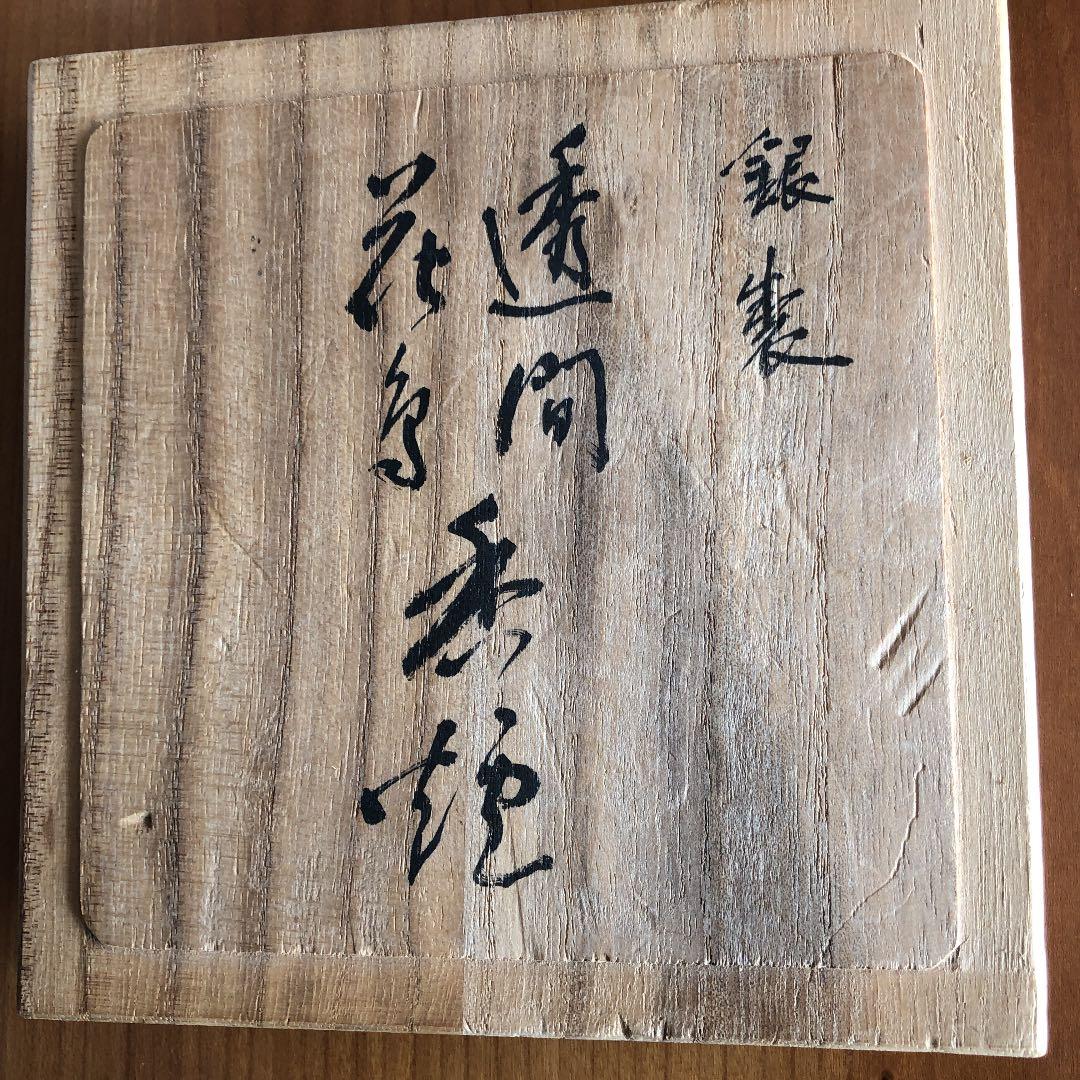 銀製
透間
花鳥
香炉